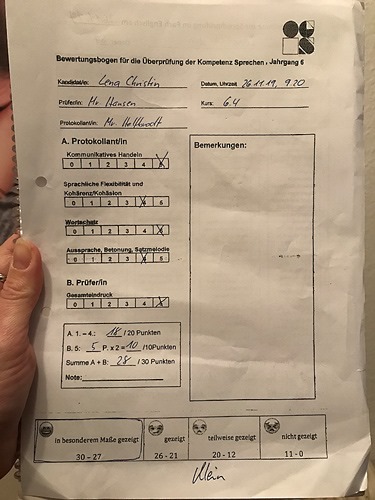 Bewertungsbogen für die Überprüfung der Kompetenz Sprechen, Jahrgang 6
Kandidat/in: Lena Christin
Datum, Uhrzeit 26.11.19, 9.20
Prüfer/in: Mr Hansen
Kurs: 6.4
Protokollant/in: Mr.
A. Protokollant/in
Bemerkungen:
Kommunikatives Handeln
0 1 2 3 4 5
Sprachliche Flexibilität und
Kohärenz/Kohäsion
0 1 2 3 4 5
Wortschatz
0 1 2 3 4 5
Aussprache, Betonung, Satzmelodie
0 1 2 3 4 5
B. Prüfer/in
Gesamteindruck
0 1 2 3 4 5
A. 1. – 4.: 18 / 20 Punkten
B. 5: 5 P. x 2 = 10 /10Punkten
Summe A + B: 28 / 30 Punkten
Note:
in besonderem Maße gezeigt
30 - 27
gezeigt
26 - 21
teilweise gezeigt
20 - 12
nicht gezeigt
11 - 0
Klein